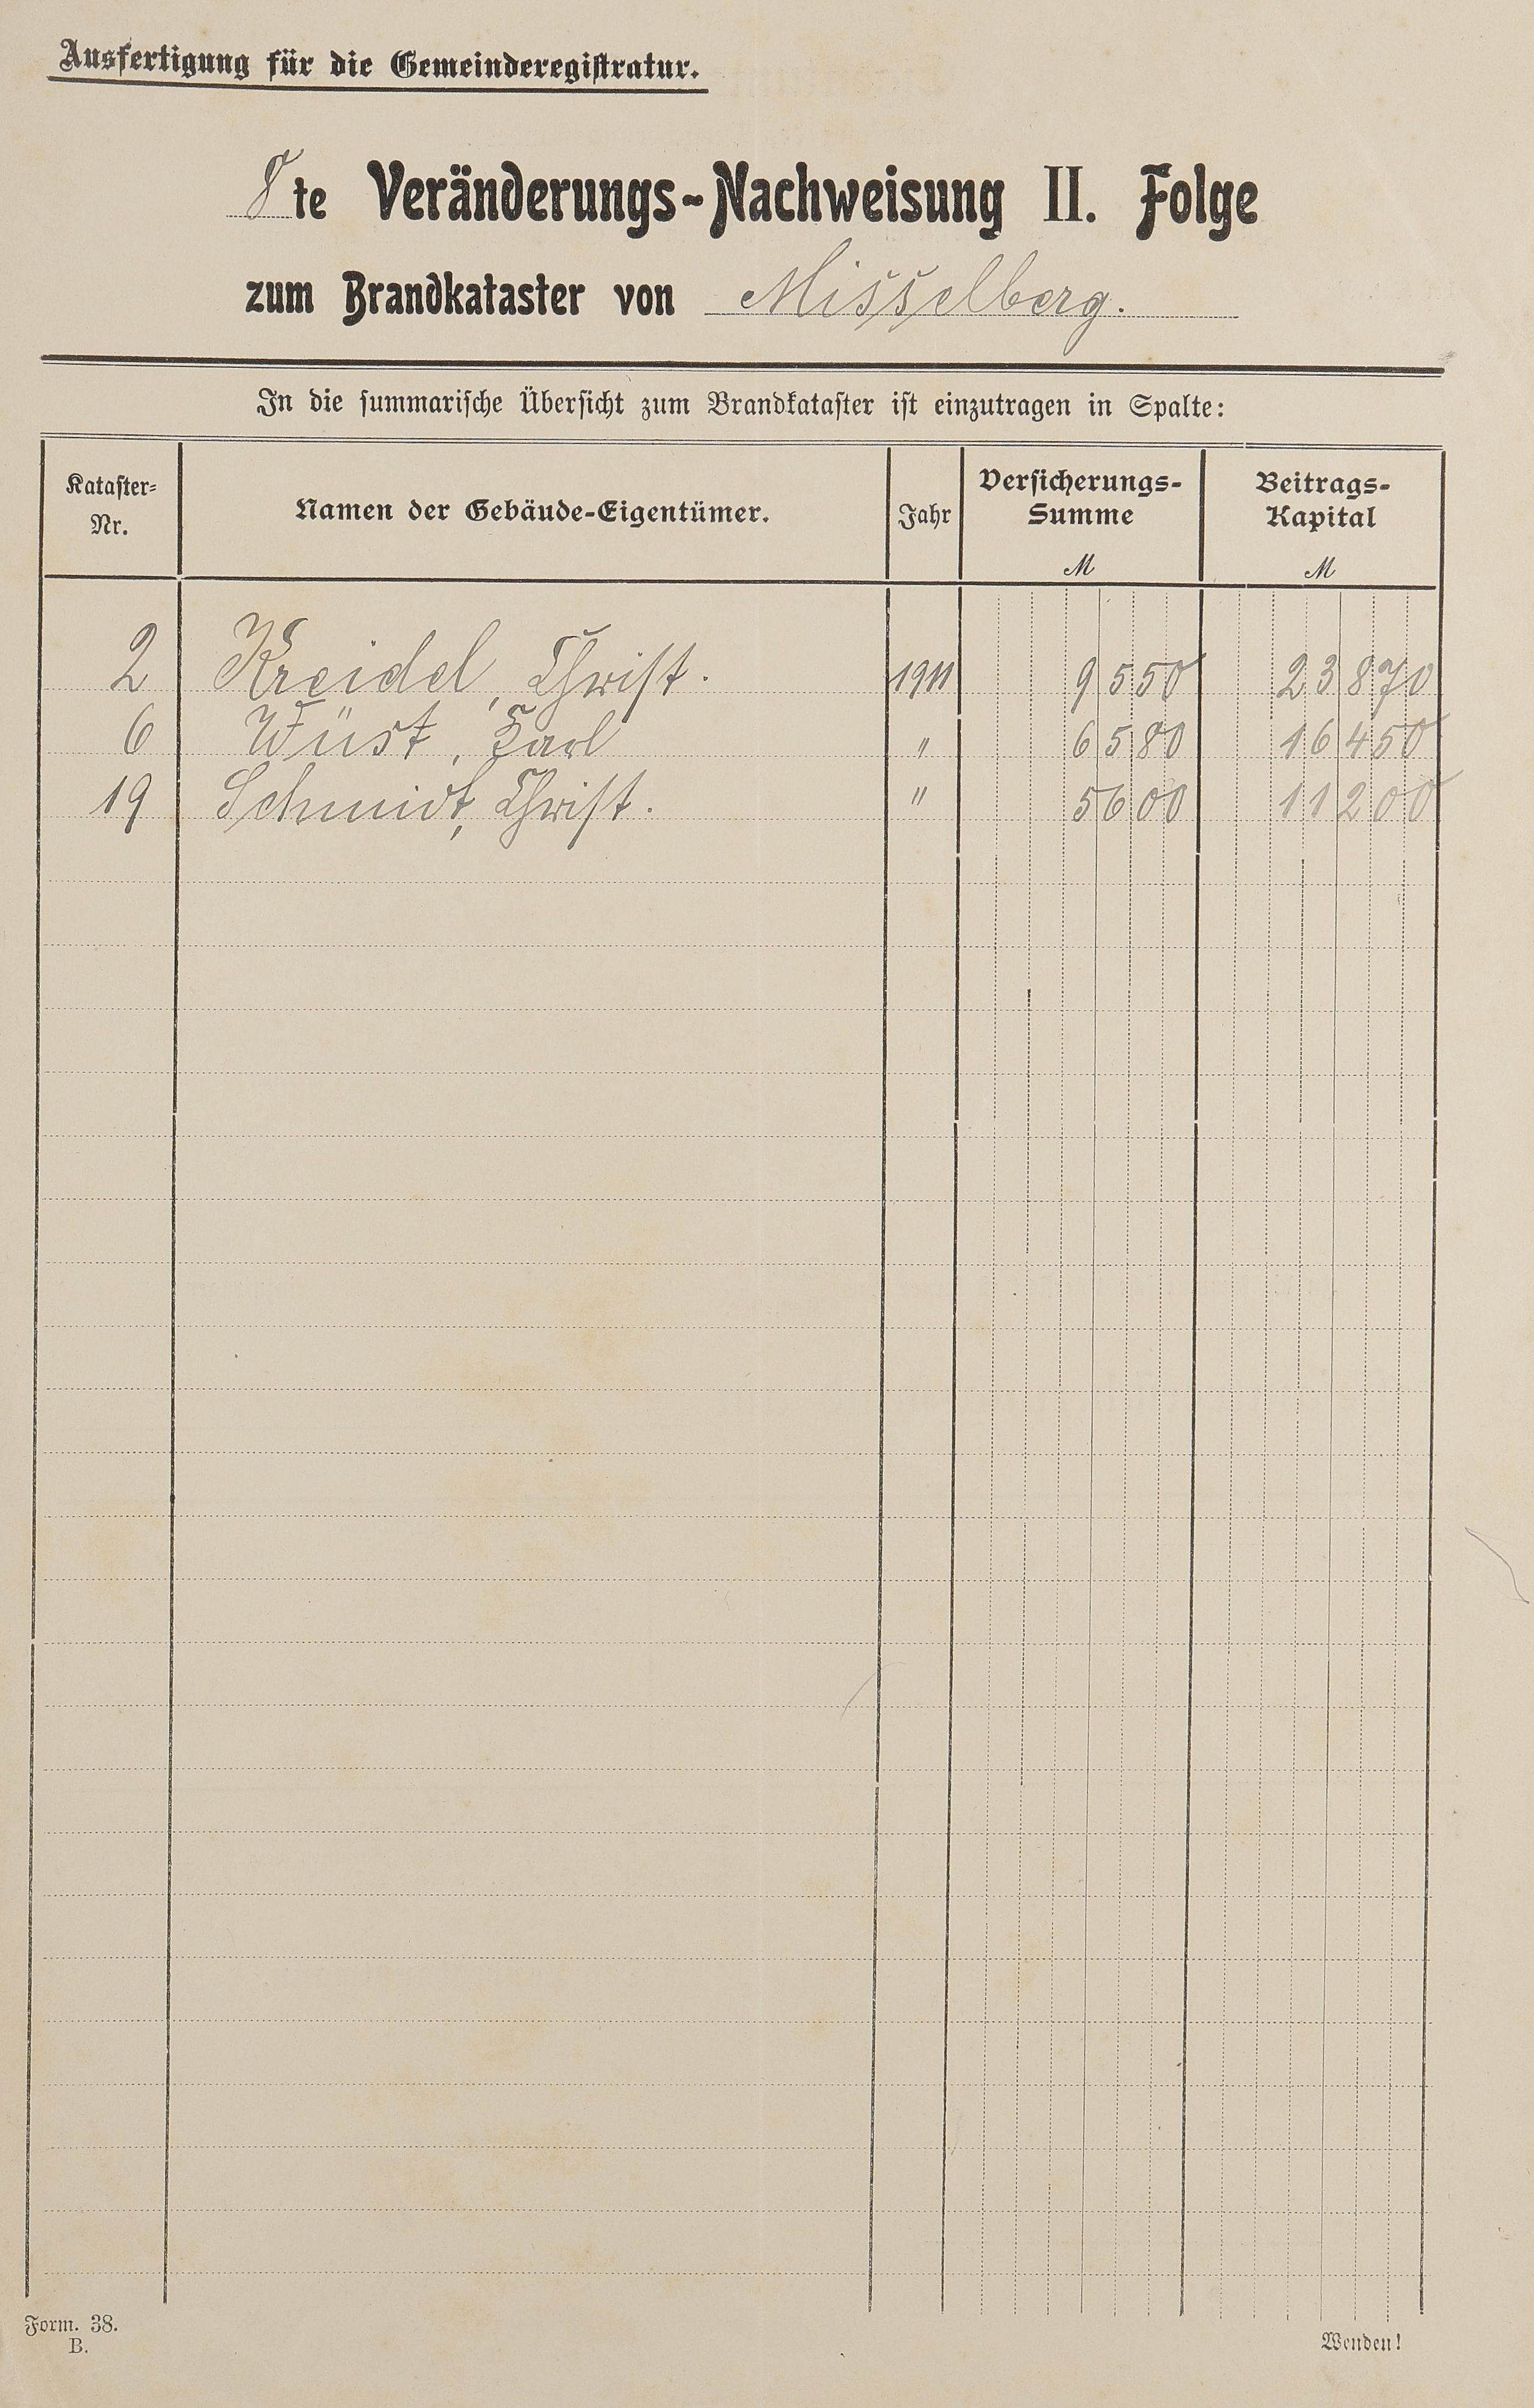 Ausfertigung für die Gemeinderegistratur.
8te Veränderungs-Nachweisung II. Folge
zum Brandkataster von Misselberg.
In die summarische Übersicht zum Brandkataster ist einzutragen in Spalte:
Kataster-Nr. Namen der Gebäude-Eigentümer. Jahr Versicherungs-Summe M Beitrags-Kapital M
2 Kreidel, Christ. 1911 9550 23870
6 Wüst, Karl " 6580 16450
19 Schmidt, Christ. " 5600 11200
Form. 38.
B.
Wenden!